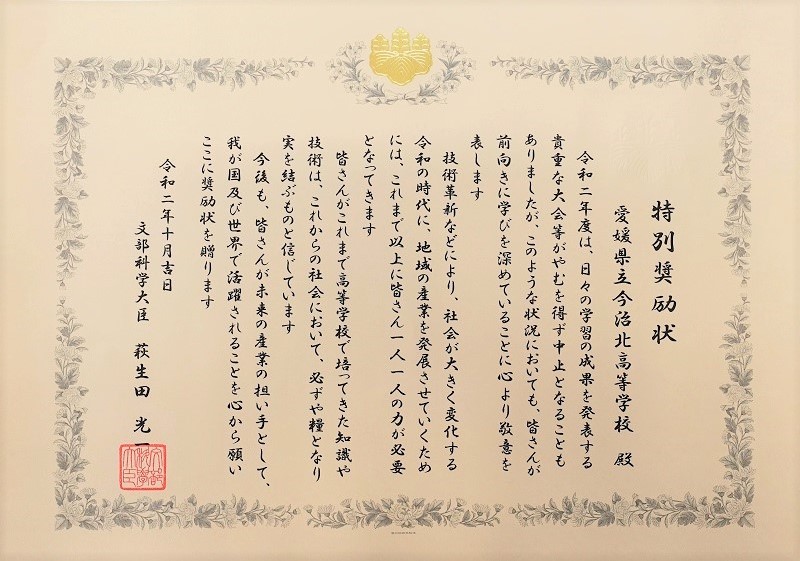 特別奨励状
愛媛県立今治北高等学校 殿
令和二年度は、日々の学習の成果を発表する
貴重な大会等がやむを得ず中止となることも
ありましたが、このような状況においても、皆さんが
前向きに学びを深めていることに心より敬意を
表します
技術革新などにより、社会が大きく変化する
令和の時代に、地域の産業を発展させていくため
には、これまで以上に皆さん一人一人の力が必要
となってきます
皆さんがこれまで高等学校で培ってきた知識や
技術は、これからの社会において、必ずや糧となり
実を結ぶものと信じています
今後も、皆さんが未来の産業の担い手として、
我が国及び世界で活躍されることを心から願い
ここに奨励状を贈ります
令和二年十月吉日
文部科学大臣 萩生田 光一
文部科学大臣